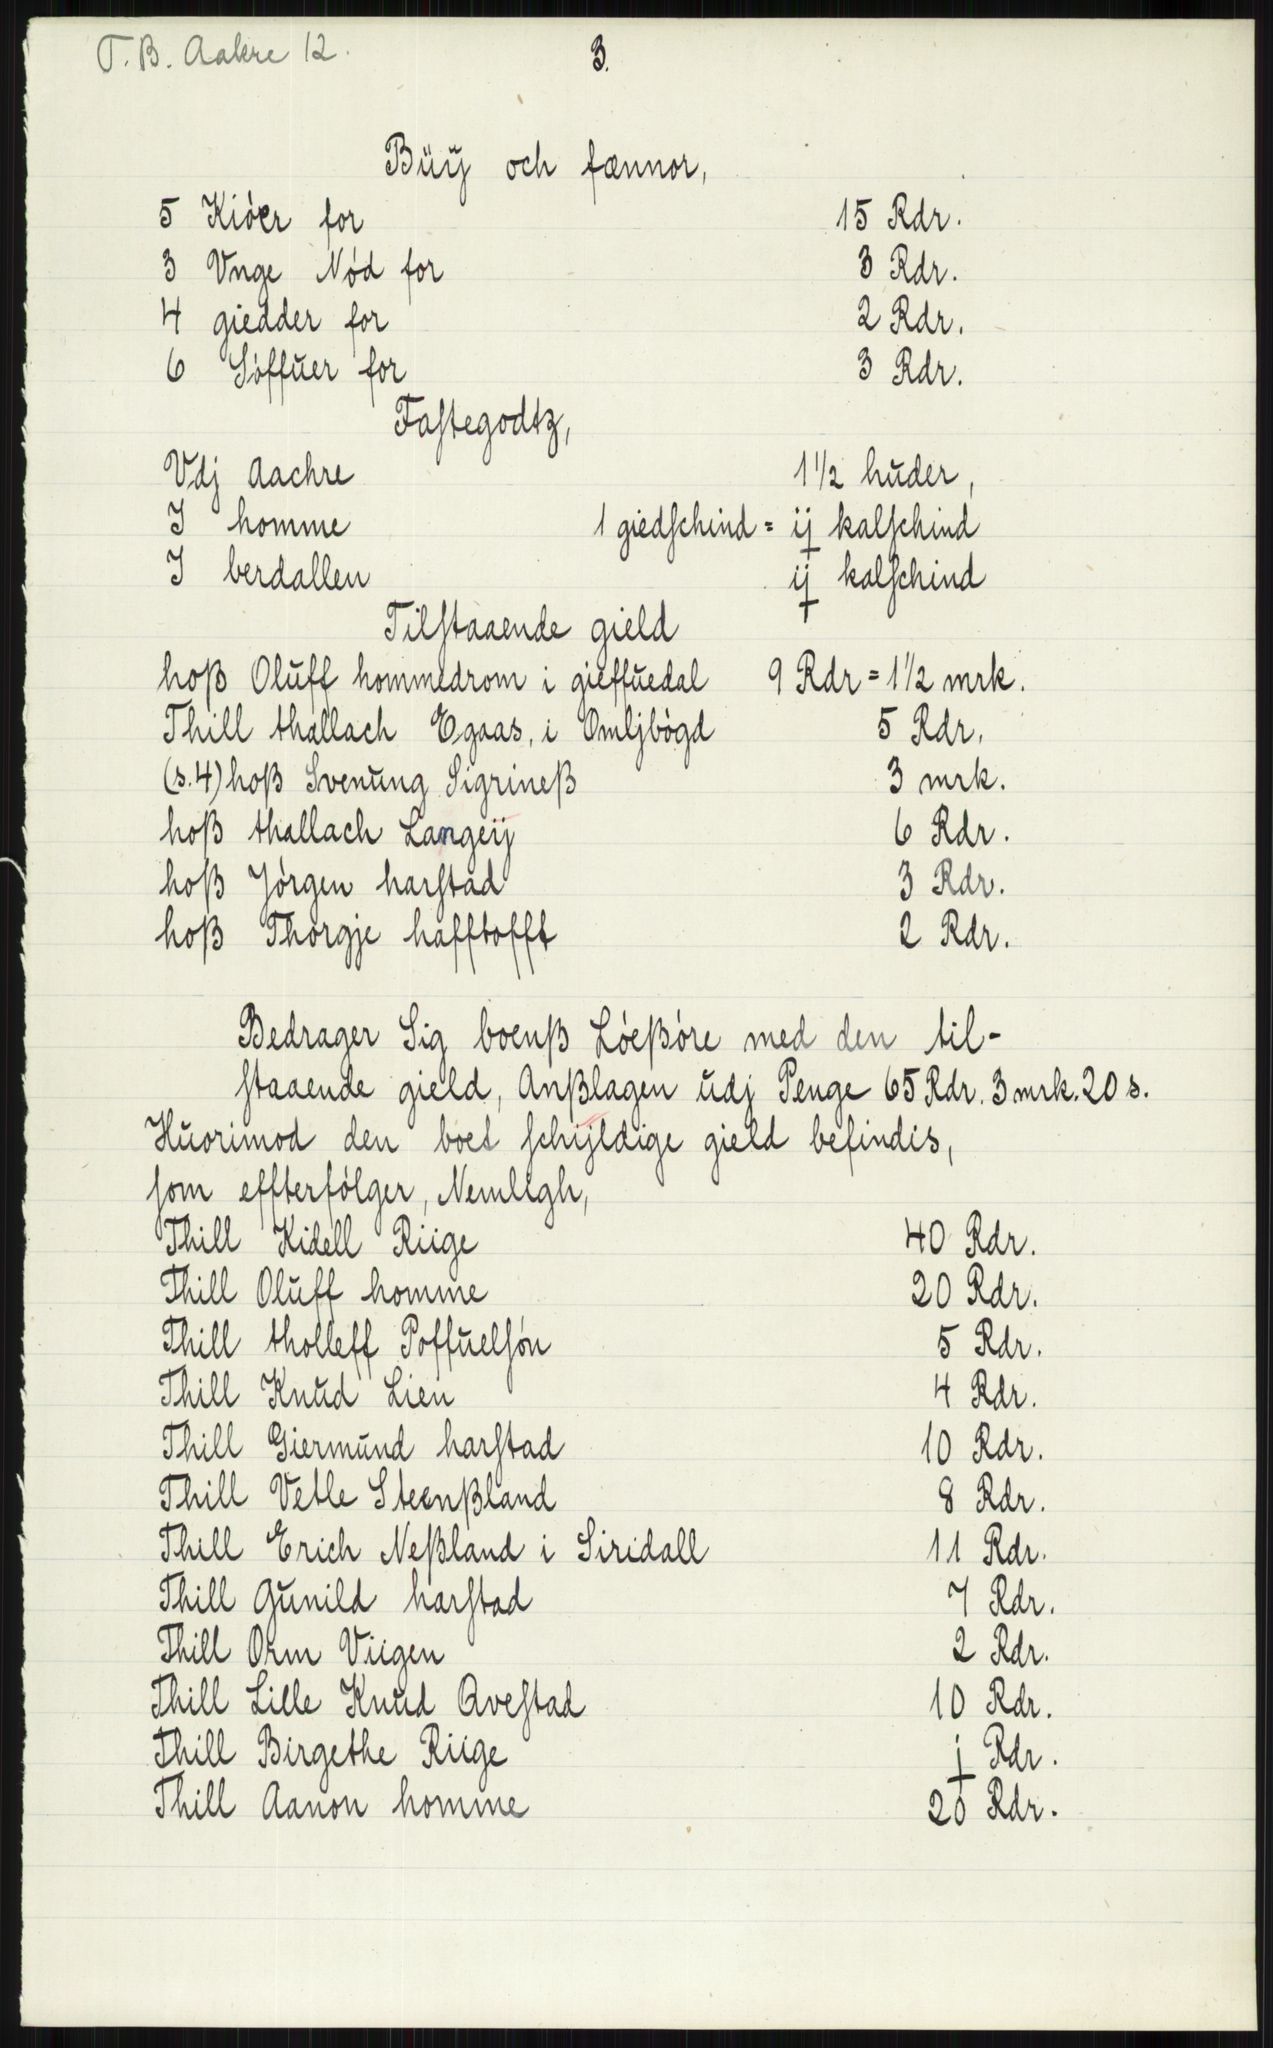 T. B. Aakre 12.
3.
Büÿ och fænnor,
5 Kióer for 15 Rdr.
3 Vnge Nód for 3 Rdr.
4 giedder for 2 Rdr.
6 Sóffuer for 3 Rdr.
Faſtegodtz,
Vdj Aachre 1 1/2 huder,
I homme 1 giedſchind = ij kalſchind
I berdallen ij kalſchind
Tilſtaaende gield
hoß Oluff hommedrom i gieffuedal 9 Rdr = 1 1/2 mrk.
Thill thallach Egaas, i Omljbógd 5 Rdr.
(s.4) hoß Svenung Sigrineß 3 mrk.
hoß thallach Langeÿ 6 Rdr.
hoß Jórgen harſtad 3 Rdr.
hoß Thorgje hafftofft 2 Rdr.
Bedrager Sig boenß Lóeßóre med den til-
ſtaaende gield, Anßlagen udj Penge 65 Rdr. 3 mrk. 20 s.
Huorimod den boet ſchijldige gield befindis,
ſom effterfólger, Nemligh,
Thill Kidell Riige 40 Rdr.
Thill Oluff homme 20 Rdr.
Thill tholleff Poffuelſón 5 Rdr.
Thill Knud Lien 4 Rdr.
Thill Giermund harſtad 10 Rdr.
Thill Vetle Steenßland 8 Rdr.
Thill Erich Neßland i Siridall 11 Rdr.
Thill Gunild harſtad 7 Rdr.
Thill Orm Viigen 2 Rdr.
Thill Lille Knud Aveſtad 10 Rdr.
Thill Birgethe Riige j Rdr.
Thill Aanon homme 20 Rdr.